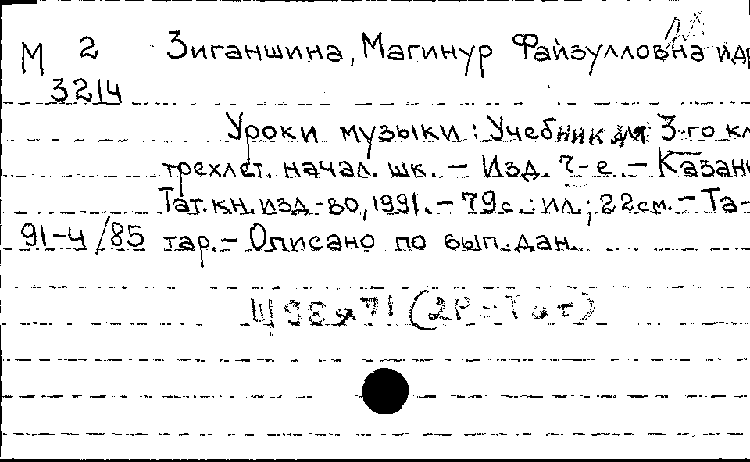 М 2 Зиганшина, Магинур Файзулловна и др
3214
Уроки музыки: Учебник для 3-го кл
трехлет. начал. шк. – Изд. 7-е. – Казань
Тат. кн. изд-во, 1991. – 79с.: ил; 22см. – Та-
91-4/85 тар. – Описано по вып. дан.
Щ98я71(2Р-Тат)